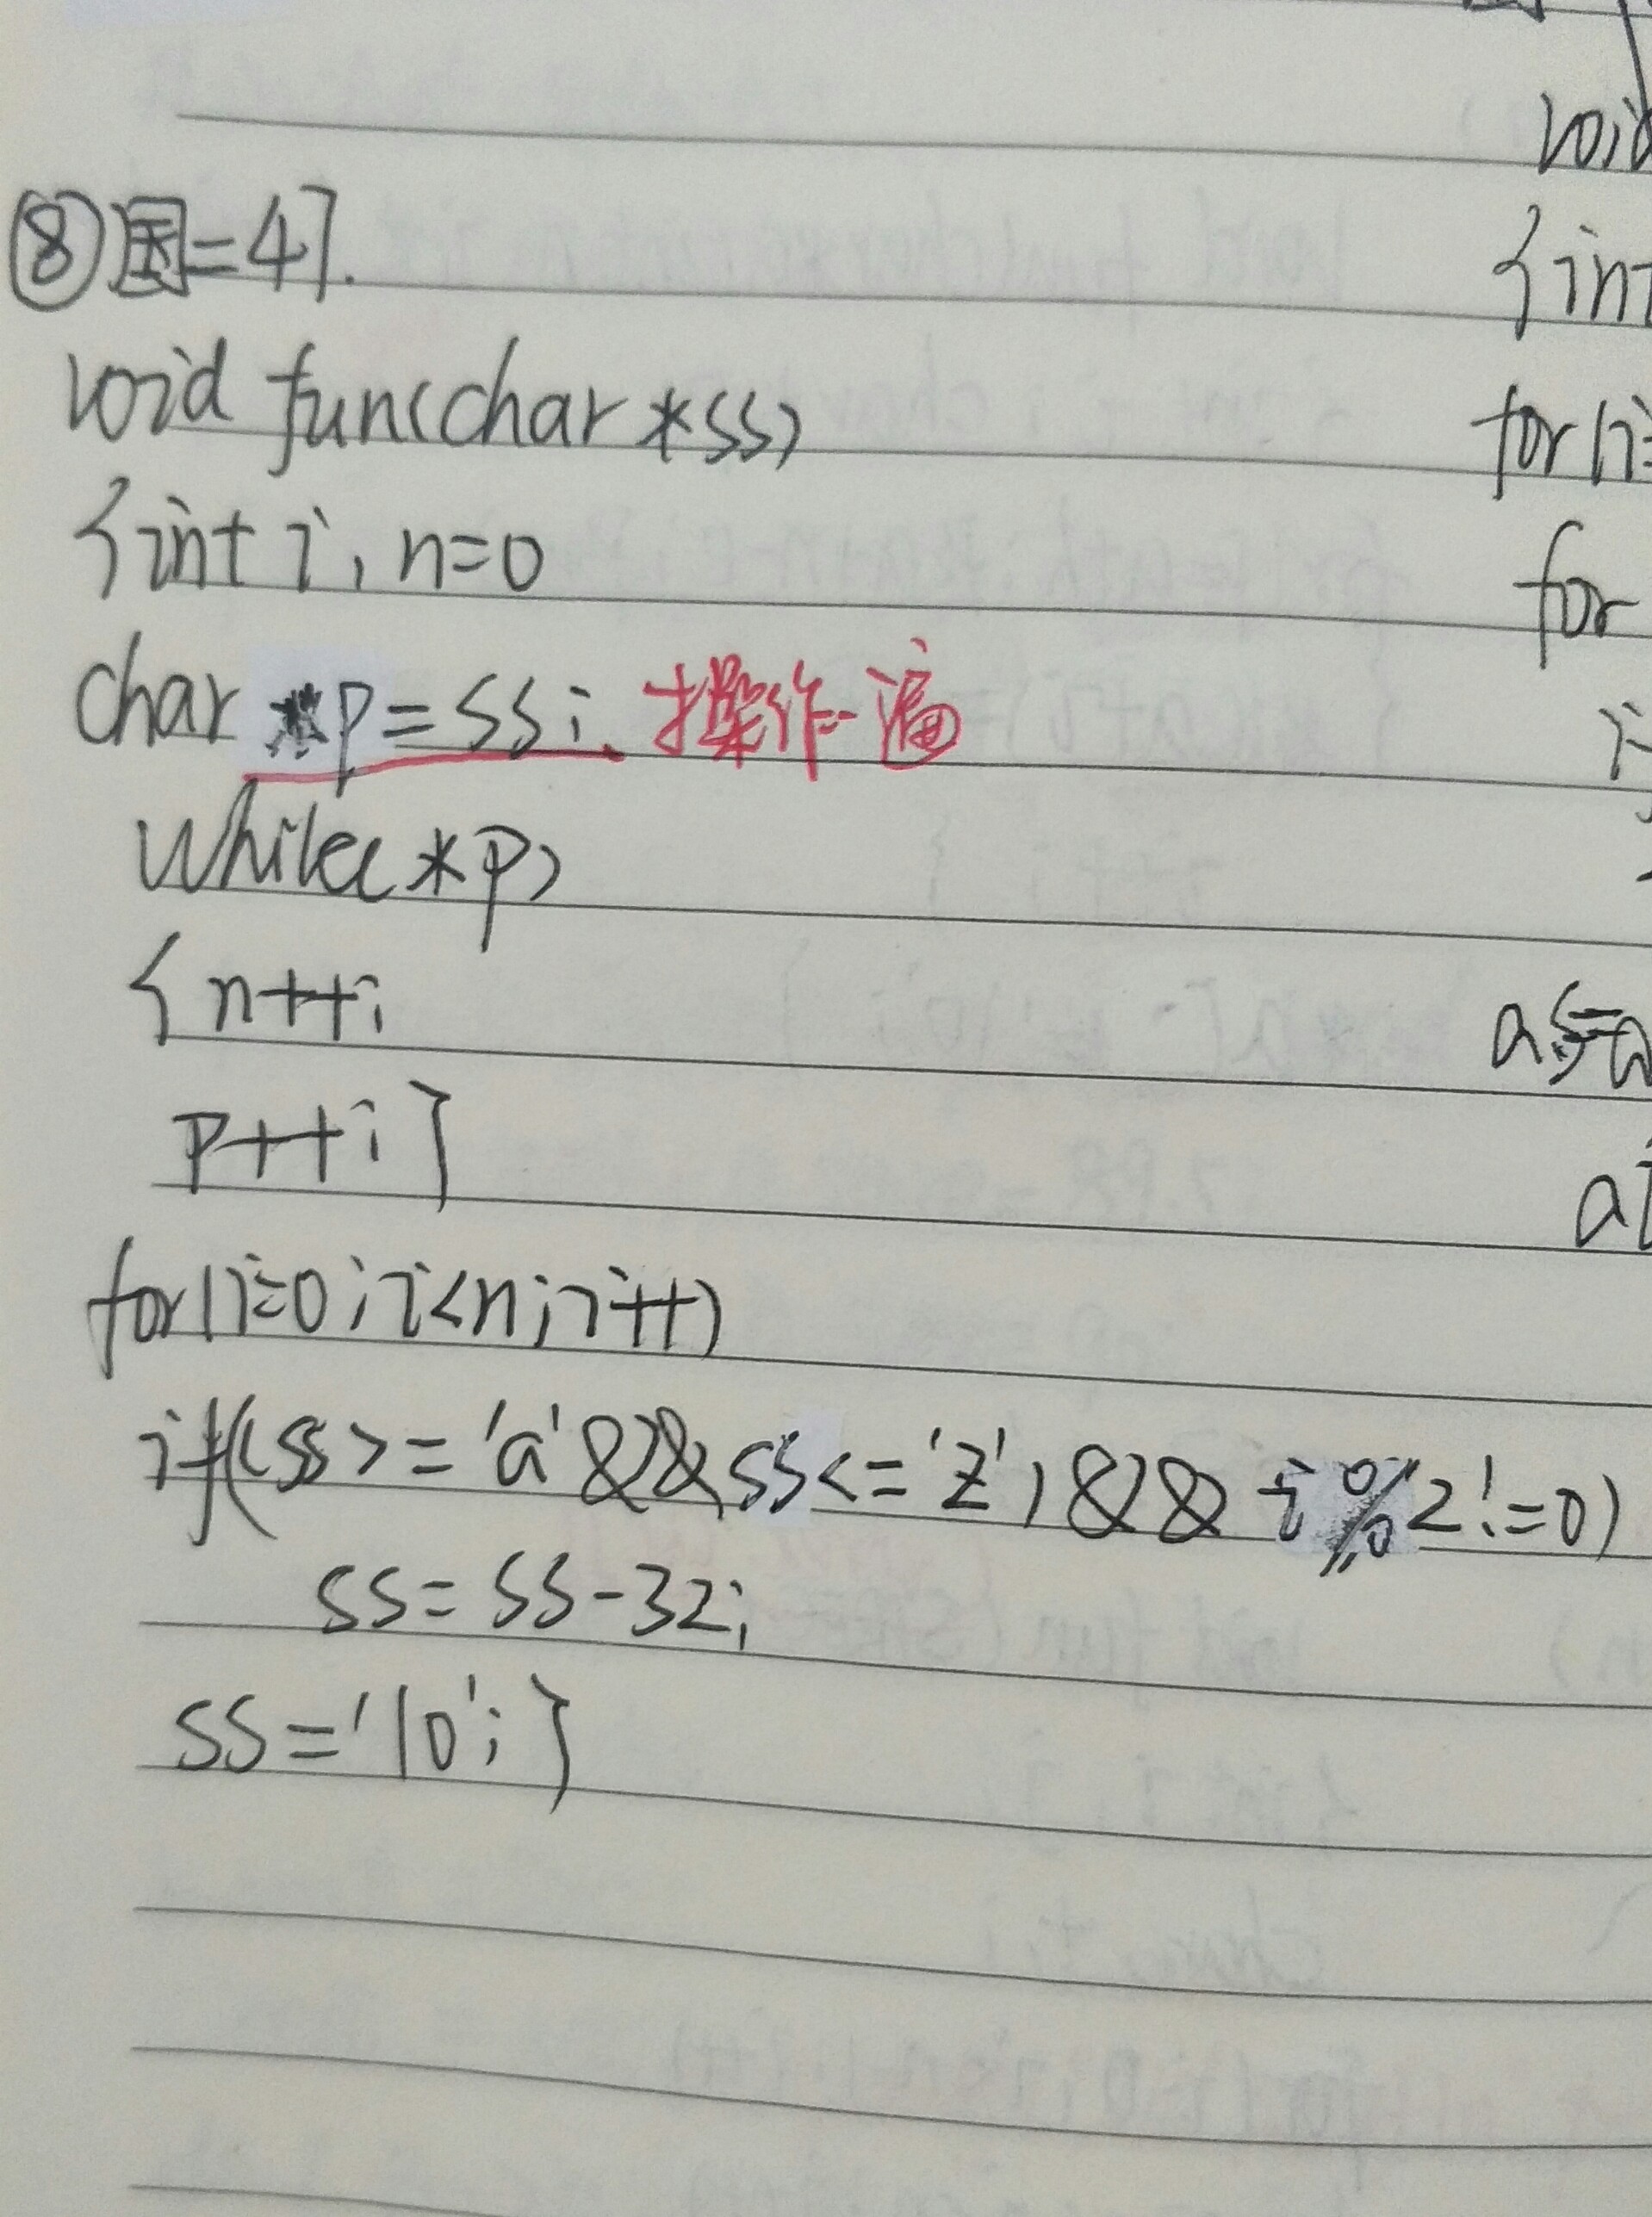 ⑧国=47.
void fun(char *ss)
{int i, n=0
char *p=ss; 操作一遍
while(*p)
{n++;
p++;}
for(i=0;i<n;i++)
if((ss>='a'&&ss<='z')&&i%2!=0)
ss=ss-32;
ss='\0';}
void
{int
for(i=
for
i=
a[